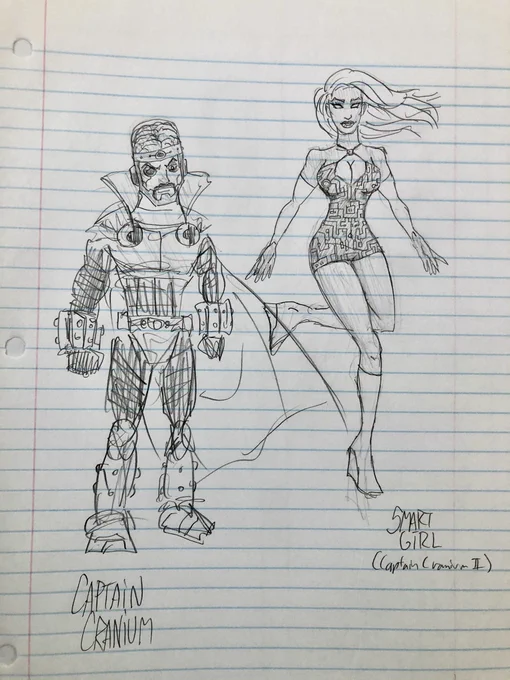 CAPTAIN
CRANIUM
SMART
GIRL
(Captain Cranium II)